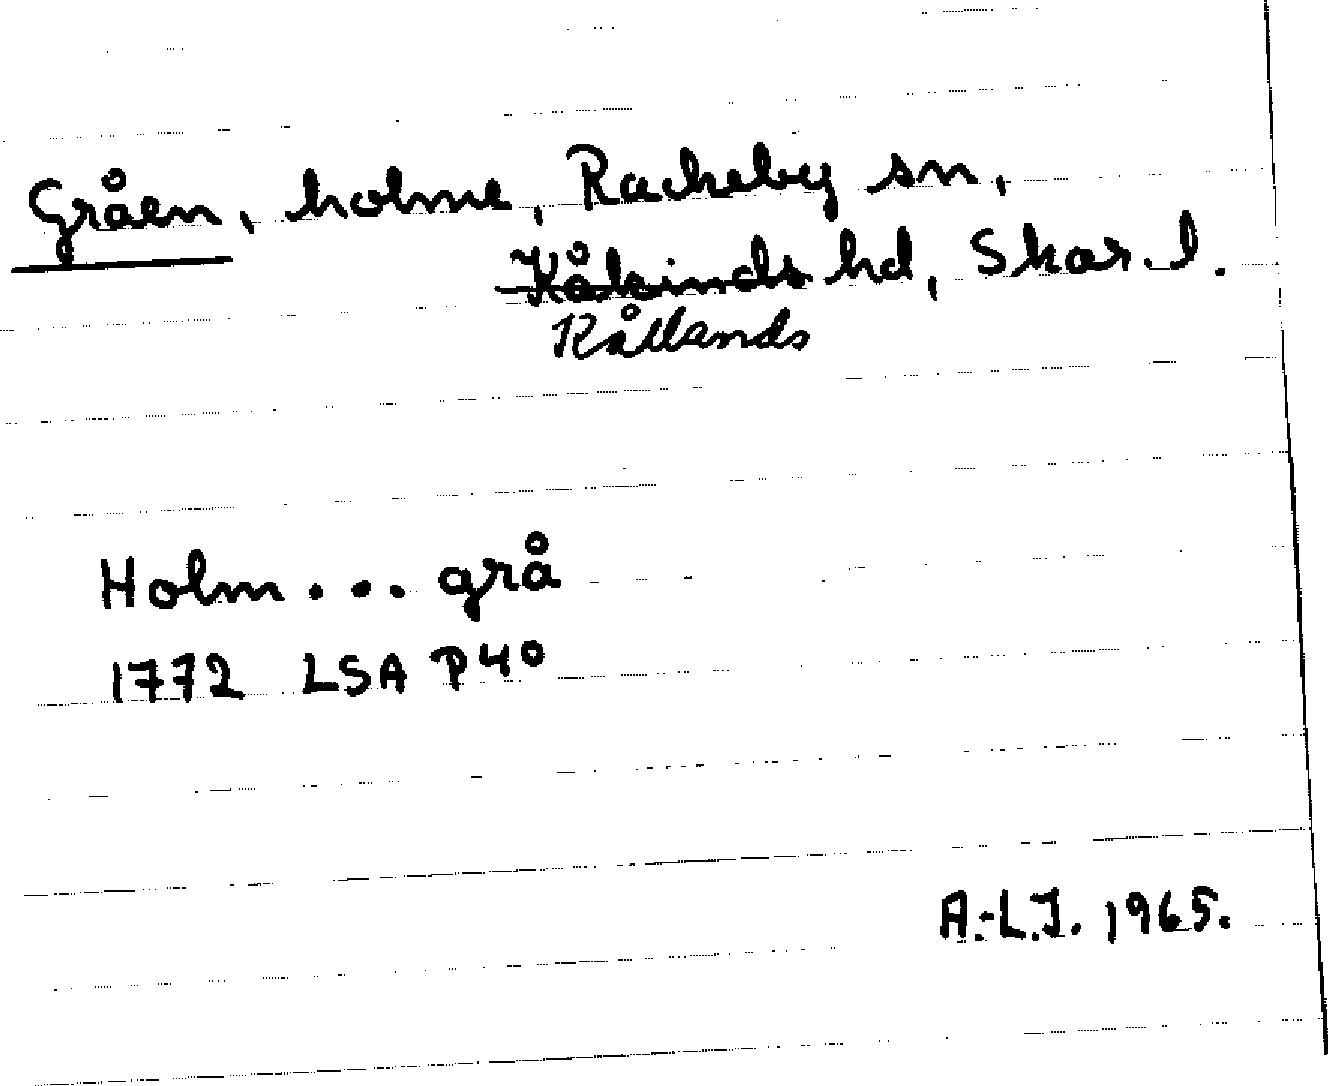 Gråen, holme, Rackeby sn,
Kåkinds hd, Skar. l.
Kållands
Holm... grå
1772 LSA P40
A.-L.J. 1965.